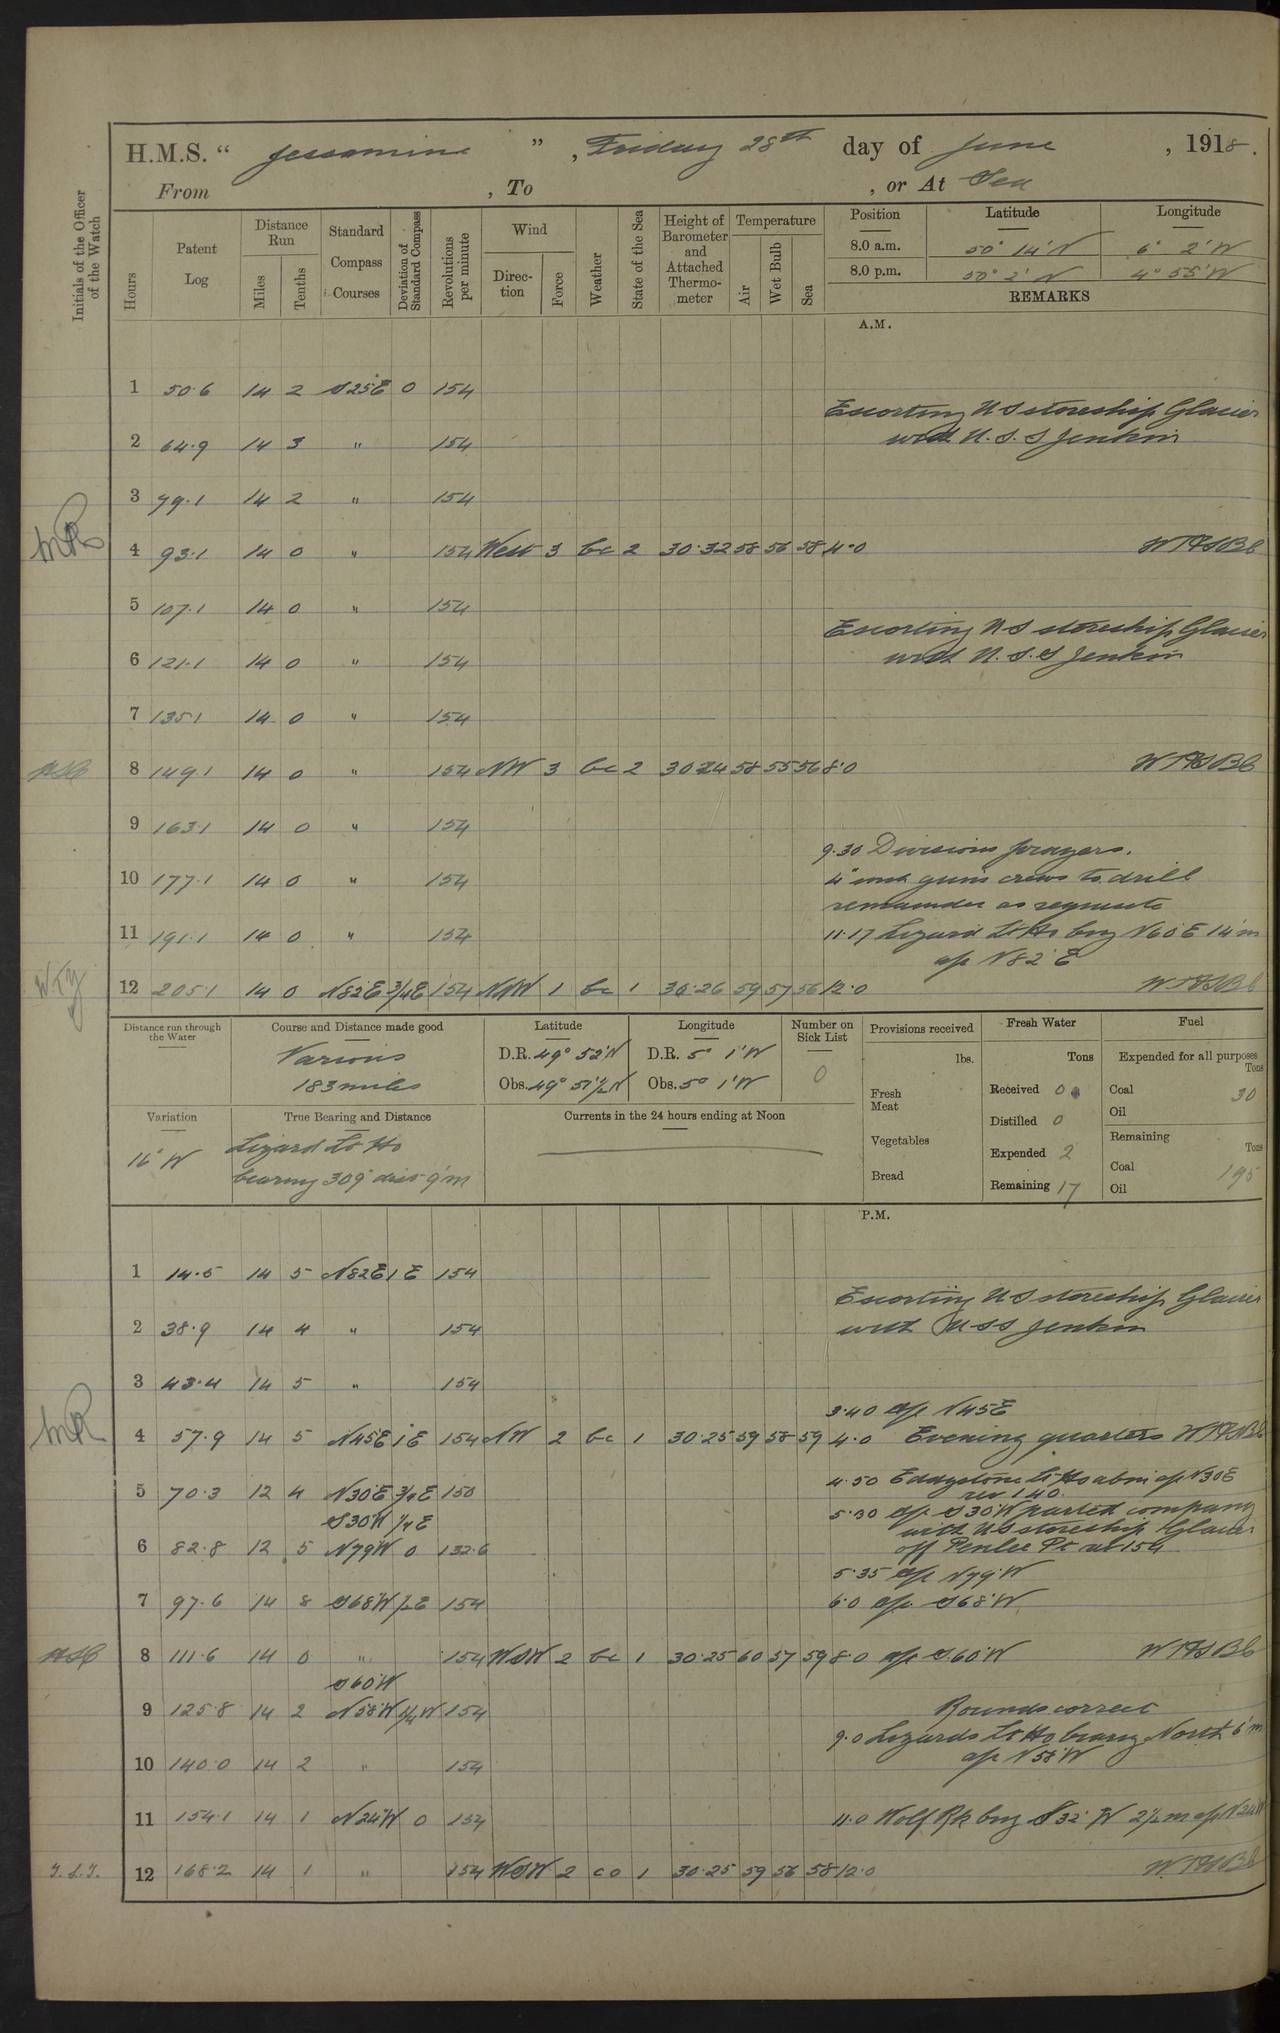 H.M.S. “ Jessamine ” , Friday 28th day of June , 1918.
From , To , or At Sea
Initials of the Officer of the Watch
Hours
Patent Log
Distance Run
Miles
Tenths
Standard Compass Courses
Deviation of Standard Compass
Revolutions per minute
Wind
Direction
Force
Weather
State of the Sea
Height of Barometer and Attached Thermometer
Temperature
Air
Wet Bulb
Sea
Position Latitude Longitude
8.0 a.m. 50° 14' N 6° 2' W
8.0 p.m. 50° 2' N 4° 55' W
REMARKS
A.M.
1 50.6 14 2 S25E 0 154
Escorting US storeship Glacier
2 64.9 14 3 " 154 with U.S.S Jenkin
3 79.1 14 2 " 154
4 93.1 14 0 " 154 West 3 bc 2 30.32 58 56 58 4.0
5 107.1 14 0 " 154
Escorting US storeship Glacier
6 121.1 14 0 " 154 with U.S.S Jenkin
7 135.1 14 0 " 154
8 149.1 14 0 " 154 NW 3 bc 2 30.24 58 55 56 8.0
9 163.1 14 0 " 154
9.30 Divisions prayers.
10 177.1 14 0 " 154 4" guns crews to drill
remainder as requisite
11 191.1 14 0 " 154 11.17 Lizard Lt Ho brg N60°E 14'm
a/c N82°E
12 205.1 14 0 N82E 3/4E 154 NNW 1 bc 1 30.26 59 57 56 12.0
Distance run through the Water
Course and Distance made good
Various
183 miles
Latitude
D.R. 49° 52' N
Obs. 49° 51½ N
Longitude
D.R. 5° 1' W
Obs. 5° 1' W
Number on Sick List
0
Provisions received
lbs.
Fresh Meat
Vegetables
Bread
Fresh Water
Tons
Received 0
Distilled 0
Expended 2
Remaining 17
Fuel
Expended for all purposes
Tons
Coal 30
Oil
Remaining
Tons
Coal 195
Oil
Variation
16° W
True Bearing and Distance
Lizard Lt Ho
bearing 309° dist 9'm
Currents in the 24 hours ending at Noon
P.M.
1 14.5 14 5 N82E 1 E 154
Escorting US storeship Glacier
2 38.9 14 4 " 154 with USS Jenkin
3 43.4 14 5 " 154
3.40 a/c N45E
4 57.9 14 5 N45E 1 E 154 NW 2 bc 1 30.25 59 58 59 4.0 Evening quarters
4.50 Eddystone Lt Ho abm a/c N30E
5 70.3 12 4 N30E 3/4E 150 rev 140
S30W 1/4 E 5.30 a/c S30W parted company
with US storeship Glacier
6 82.8 12 5 N79W 0 132.6 off Penlee Pt rev 154
5.35 a/c N79°W
7 97.6 14 8 S68W ½E 154 6.0 a/c S68°W
8 111.6 14 0 " 154 WSW 2 bc 1 30.25 60 57 59 8.0 a/c S60°W
S60W
9 125.8 14 2 N58W 1/4W 154 Rounds correct
9.0 Lizards Lt Ho bearing North 6'm
10 140.0 14 2 " 154 a/c N58°W
11 154.1 14 1 N24W 0 154 11.0 Wolf Rk brg S32°W 2½m a/c N24W
12 168.2 14 1 " 154 WSW 2 co 1 30.25 59 56 58 12.0